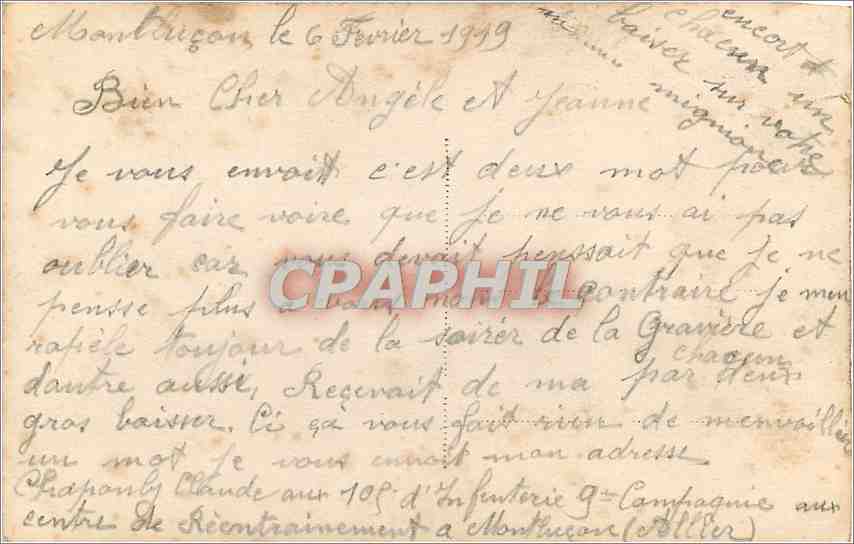 Montluçon le 6 Fevrier 1919
encort
chacun un
baiser sur votre
mignion
Bien Cher Angèle et Jeanne
Je vous envoit c'est deux mot pour
vous faire voire que je ne vous ai pas
oublier car vous devait penssait que je ne
pensse plus a vous mais le contraire je men
rapèle toujour de la soirér de la Gravière et
dautre aussi, Reçevait de ma par chacun deux
gros baisser. Ci çà vous fait rien de menvoillier
un mot je vous envoit mon adresse
Claude aux 105 d'Infenterie 9me Compagnie aux
centre de Réentrainement a Montluçon (Allier)
CPAPHIL